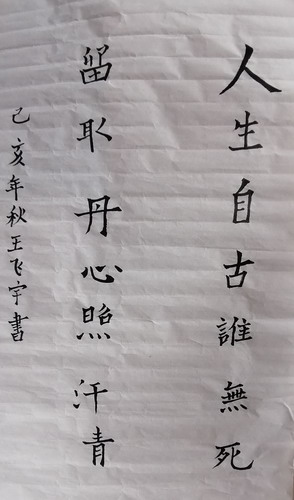 人生自古誰無死
留取丹心照汗青
己亥年秋王飞宇書